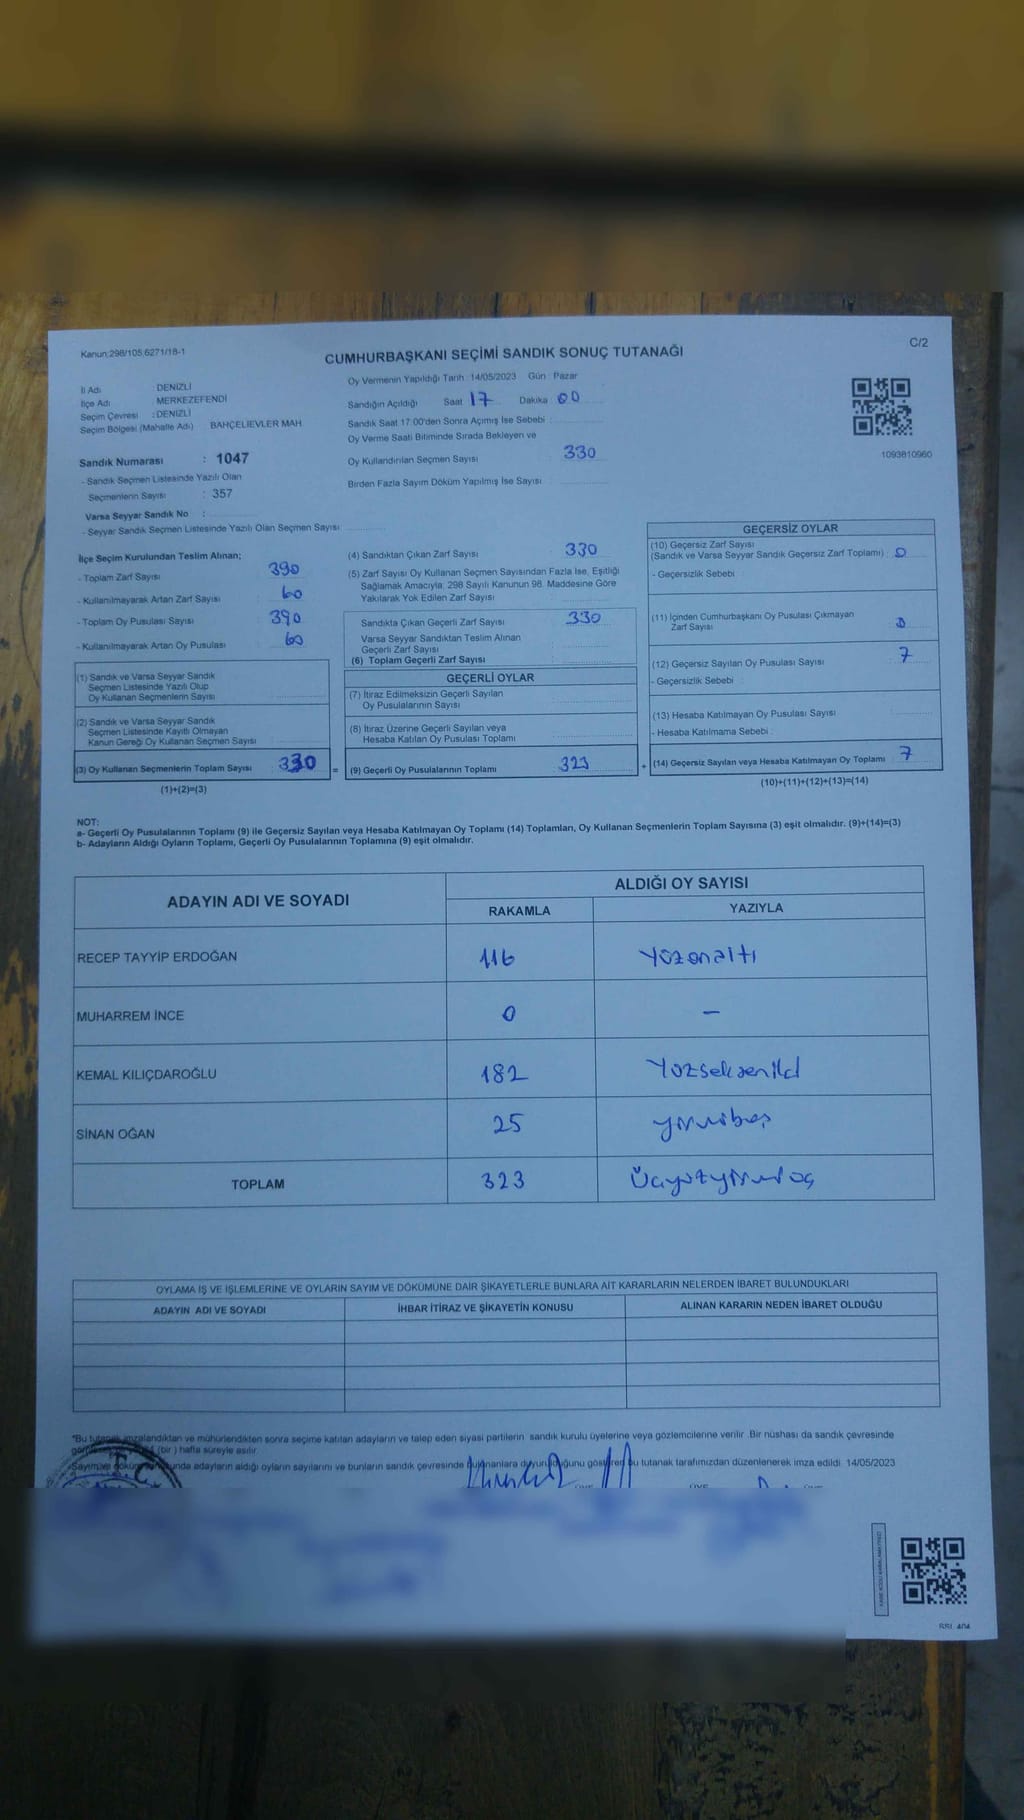 Kanun;298/105,6271/18-1
C/2
CUMHURBAŞKANI SEÇİMİ SANDIK SONUÇ TUTANAĞI
İl Adı DENİZLİ
İlçe Adı MERKEZEFENDİ
Seçim Çevresi : DENİZLİ
Seçim Bölgesi (Mahalle Adı) BAHÇELİEVLER MAH.
Sandık Numarası : 1047
- Sandık Seçmen Listesinde Yazılı Olan
Seçmenlerin Sayısı : 357
Varsa Seyyar Sandık No :
- Seyyar Sandık Seçmen Listesinde Yazılı Olan Seçmen Sayısı
Oy Vermenin Yapıldığı Tarih : 14/05/2023 Gün : Pazar
Sandığın Açıldığı Saat 17 Dakika 00
Sandık Saat 17:00'den Sonra Açılmış İse Sebebi :
Oy Verme Saati Bitiminde Sırada Bekleyen ve
Oy Kullandırılan Seçmen Sayısı : 330
Birden Fazla Sayım Döküm Yapılmış İse Sayısı :
1093810960
İlçe Seçim Kurulundan Teslim Alınan;
- Toplam Zarf Sayısı : 390
- Kullanılmayarak Artan Zarf Sayısı : 60
- Toplam Oy Pusulası Sayısı : 390
- Kullanılmayarak Artan Oy Pusulası : 60
(1) Sandık ve Varsa Seyyar Sandık
Seçmen Listesinde Yazılı Olup
Oy Kullanan Seçmenlerin Sayısı :
(2) Sandık ve Varsa Seyyar Sandık
Seçmen Listesinde Kayıtlı Olmayan
Kanun Gereği Oy Kullanan Seçmen Sayısı :
(3) Oy Kullanan Seçmenlerin Toplam Sayısı : 330
(1)+(2)=(3)
(4) Sandıktan Çıkan Zarf Sayısı : 330
(5) Zarf Sayısı Oy Kullanan Seçmen Sayısından Fazla İse, Eşitliği
Sağlamak Amacıyla, 298 Sayılı Kanunun 98. Maddesine Göre
Yakılarak Yok Edilen Zarf Sayısı :
Sandıkta Çıkan Geçerli Zarf Sayısı : 330
Varsa Seyyar Sandıktan Teslim Alınan
Geçerli Zarf Sayısı :
(6) Toplam Geçerli Zarf Sayısı :
GEÇERLİ OYLAR
(7) İtiraz Edilmeksizin Geçerli Sayılan
Oy Pusulalarının Sayısı :
(8) İtiraz Üzerine Geçerli Sayılan veya
Hesaba Katılan Oy Pusulası Toplamı :
= (9) Geçerli Oy Pusulalarının Toplamı : 323
GEÇERSİZ OYLAR
(10) Geçersiz Zarf Sayısı
(Sandık ve Varsa Seyyar Sandık Geçersiz Zarf Toplamı) : 0
- Geçersizlik Sebebi :
(11) İçinden Cumhurbaşkanı Oy Pusulası Çıkmayan
Zarf Sayısı : 0
(12) Geçersiz Sayılan Oy Pusulası Sayısı : 7
- Geçersizlik Sebebi :
(13) Hesaba Katılmayan Oy Pusulası Sayısı :
- Hesaba Katılmama Sebebi :
+ (14) Geçersiz Sayılan veya Hesaba Katılmayan Oy Toplamı : 7
(10)+(11)+(12)+(13)=(14)
NOT:
a- Geçerli Oy Pusulalarının Toplamı (9) ile Geçersiz Sayılan veya Hesaba Katılmayan Oy Toplamı (14) Toplamları, Oy Kullanan Seçmenlerin Toplam Sayısına (3) eşit olmalıdır. (9)+(14)=(3)
b- Adayların Aldığı Oyların Toplamı, Geçerli Oy Pusulalarının Toplamına (9) eşit olmalıdır.
ADAYIN ADI VE SOYADI
ALDIĞI OY SAYISI
RAKAMLA YAZIYLA
RECEP TAYYİP ERDOĞAN 116 Yüzonaltı
MUHARREM İNCE 0 -
KEMAL KILIÇDAROĞLU 182 Yüzsekseniki
SİNAN OĞAN 25 yirmibeş
TOPLAM 323 Üçyüzyirmiüç
OYLAMA İŞ VE İŞLEMLERİNE VE OYLARIN SAYIM VE DÖKÜMÜNE DAİR ŞİKAYETLERLE BUNLARA AİT KARARLARIN NELERDEN İBARET BULUNDUKLARI
ADAYIN ADI VE SOYADI İHBAR İTİRAZ VE ŞİKAYETİN KONUSU ALINAN KARARIN NEDEN İBARET OLDUĞU
*Bu tutanak imzalandıktan ve mühürlendikten sonra seçime katılan adayların ve talep eden siyasi partilerin sandık kurulu üyelerine veya gözlemcilerine verilir. Bir nüshası da sandık çevresinde
(bir) hafta süreyle asılır.
adayların aldığı oyların sayılarını ve bunların sandık çevresinde bulunanlara duyurulduğunu gösteren bu tutanak tarafımızdan düzenlenerek imza edildi. 14/05/2023
T.C.
ÜYE